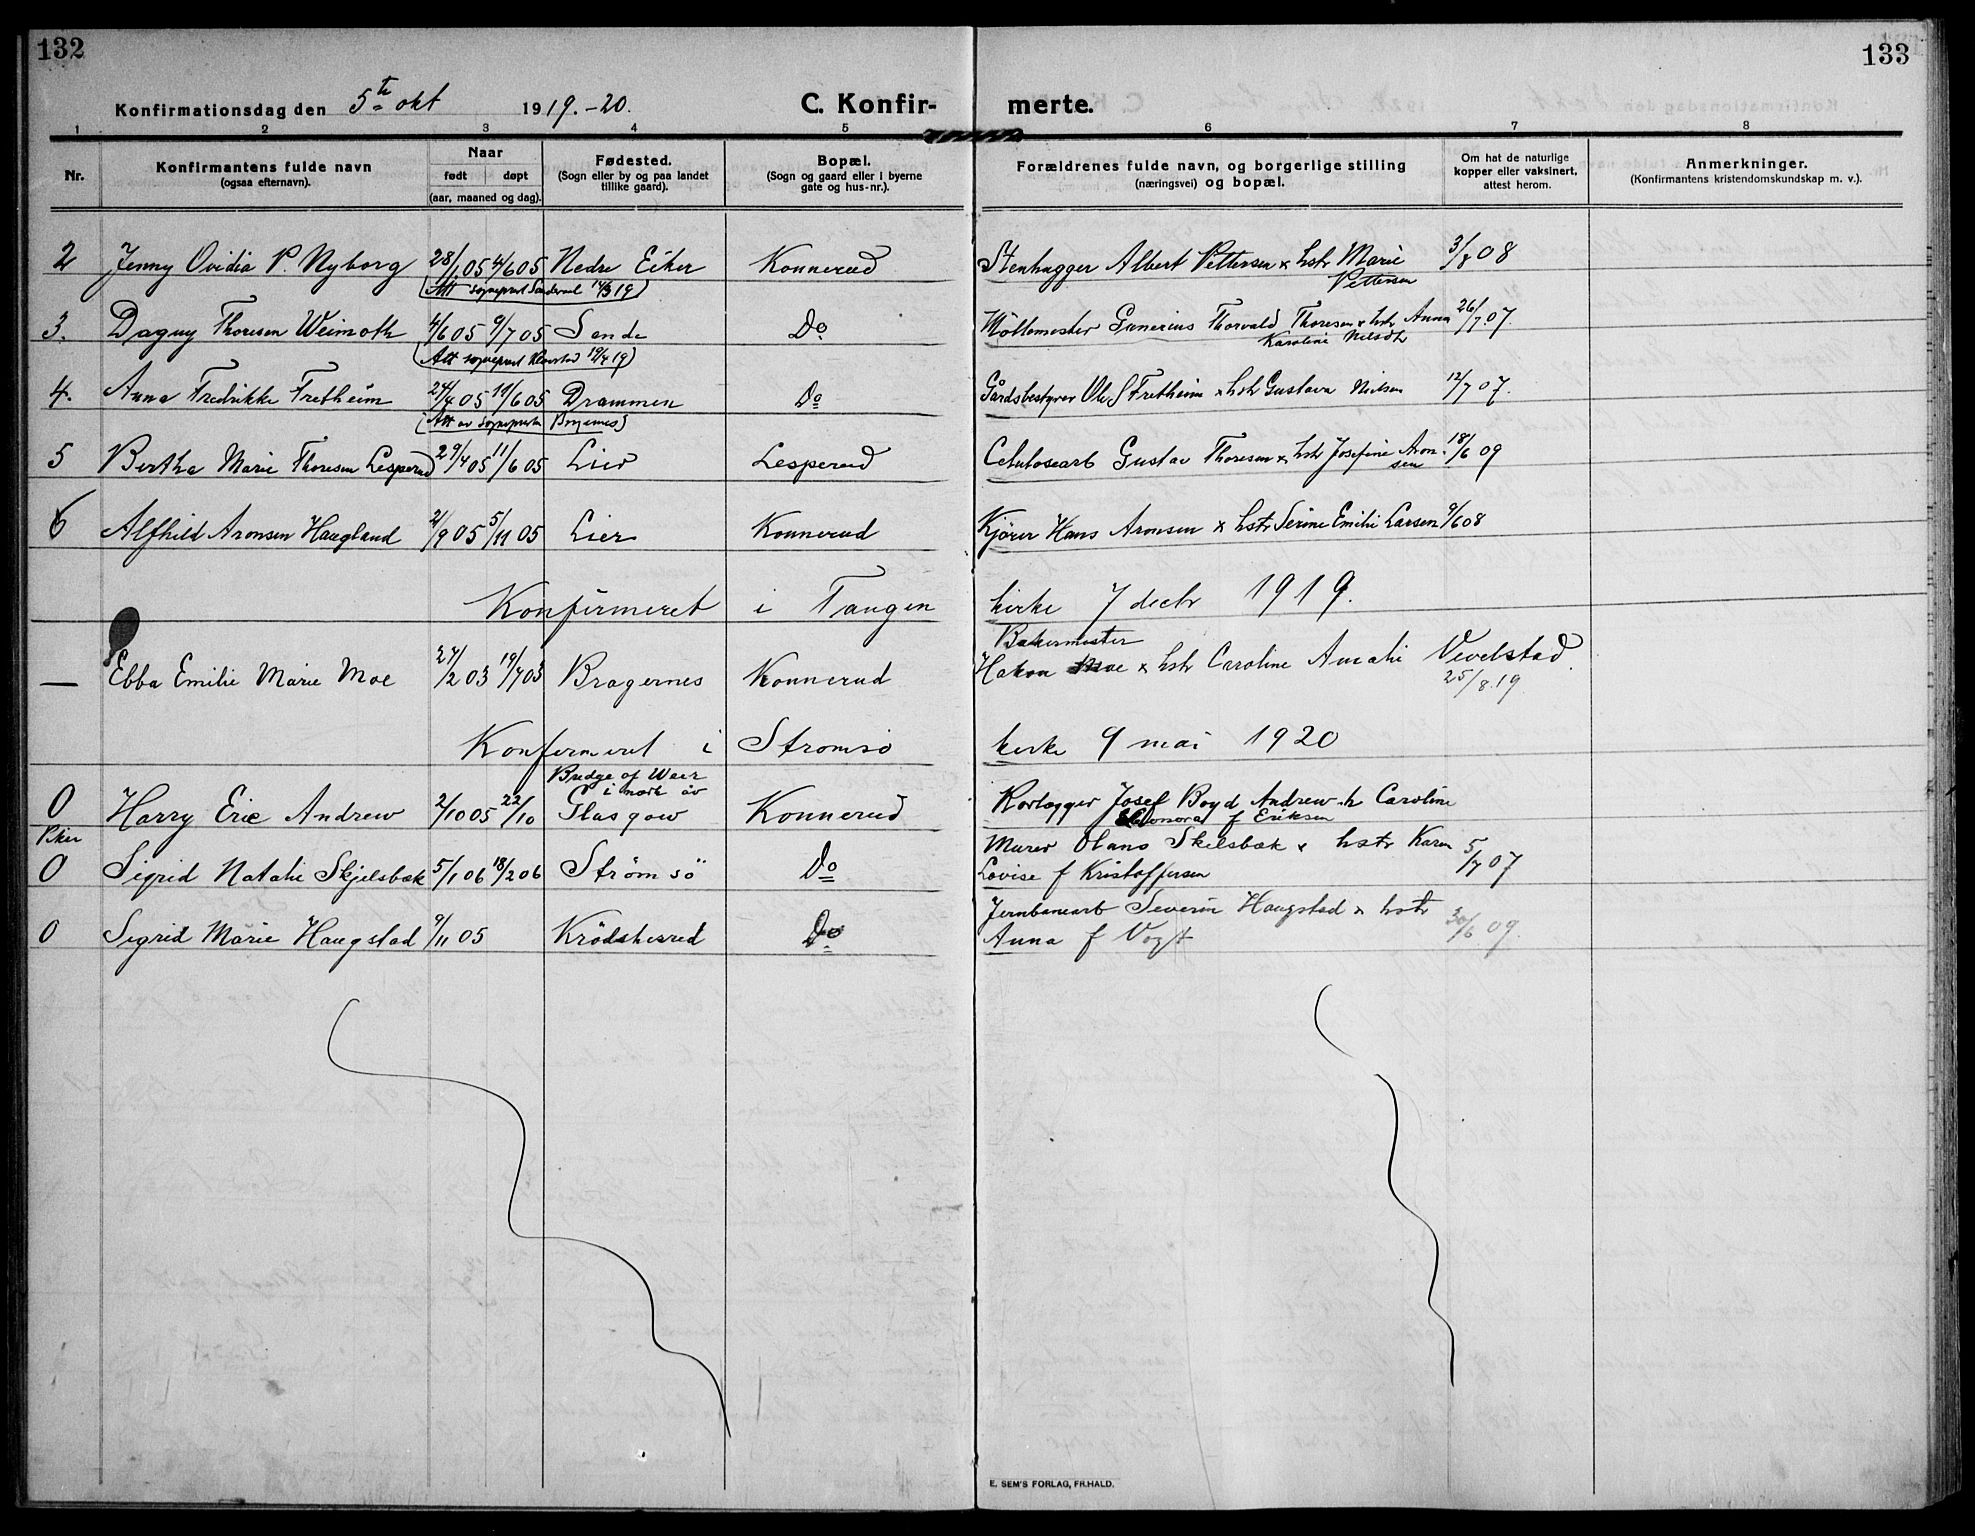 132
133
Konfirmationsdag den 5te okt 1919.-20. C. Konfir- merte.
1 2 3 4 5 6 7 8
Nr.
Konfirmantens fulde navn
(ogsaa efternavn).
Naar
født døpt
(aar, maaned og dag).
Fødested.
(Sogn eller by og paa landet
tillike gaard).
Bopæl.
(Sogn og gaard eller i byerne
gate og hus-nr.).
Forældrenes fulde navn, og borgerlige stilling
(næringsvei) og bopæl.
Om hat de naturlige
kopper eller vaksinert,
attest herom.
Anmerkninger.
(Konfirmantens kristendomskundskap m. v.).
2 Jenny Ovidia P. Nyborg 28/1 05 4/6 05 Nedre Eiker Konnerud Stenhugger Albert Pettersen x hstr Marie 3/8 08
Pettersen
(Att sogneprest 14/3 19)
3. Dagny Thoresen Weimoth 4/6 05 9/7 05 Sande Do Møllemester Gunerius Thorvald Thoresen x hstr Anna 26/7 07
Karoline Nilsdtr
(Att sogneprest 19/4 19)
4. Anna Fredrikke Fretheim 24/4 05 19/6 05 Drammen Do Gårdsbestyrer Ole S Fretheim x hstr Gustava Nielsen 12/7 07.
(Att av sogneprest Bragernes)
5 Bertha Marie Thoresen Lesperud 29/4 05 11/6 05 Lier Lesperud Celulosearb Gustav Thoresen x hstr Josefine Aron- 18/6 09
sen
6 Alfhild Aronsen Haugland 2/9 05 5/11 05 Lier Konnerud Kjører Hans Aronsen x hstr Serine Emilie Larsen 9/6 08
Konfirmeret i Tangen kirke 7 decbr 1919.
Bakermester
— Ebba Emilie Marie Moe 27/2 03 19/7 03 Bragernes Konnerud Hakon Moe x hstr Caroline Amalie Vevelstad.
25/8.19.
Konfirmeret i Strømsø kirke 9 mai 1920
Bridge of Weir
i nærh av
0 Harry Eric Andrew 2/10 05 22/10 Glasgow Konnerud Rørlægger Josef Boyd Andrew h Caroline
Eleonora f Eriksen
Murer Olans Skjelsbæk x hstr Karen
0 Sigrid Natalie Skjelsbæk 5/1 06 18/2 06 Strømsö Do Lovise f Kristoffersen 5/7 07
Jernbanearb Severin Haugstad x hstr
0 Sigrid Marie Haugstad 9/11 05 Krödsherred Do Anna f Vogt 30/6 09.
E. SEM'S FORLAG, FR.HALD.